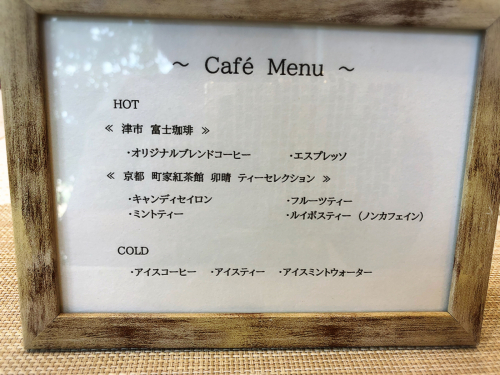 ～ Café Menu ～
HOT
≪ 津市 富士珈琲 ≫
・オリジナルブレンドコーヒー ・エスプレッソ
≪ 京都 町家紅茶館 卯晴 ティーセレクション ≫
・キャンディセイロン ・フルーツティー
・ミントティー ・ルイボスティー (ノンカフェイン)
COLD
・アイスコーヒー ・アイスティー ・アイスミントウォーター